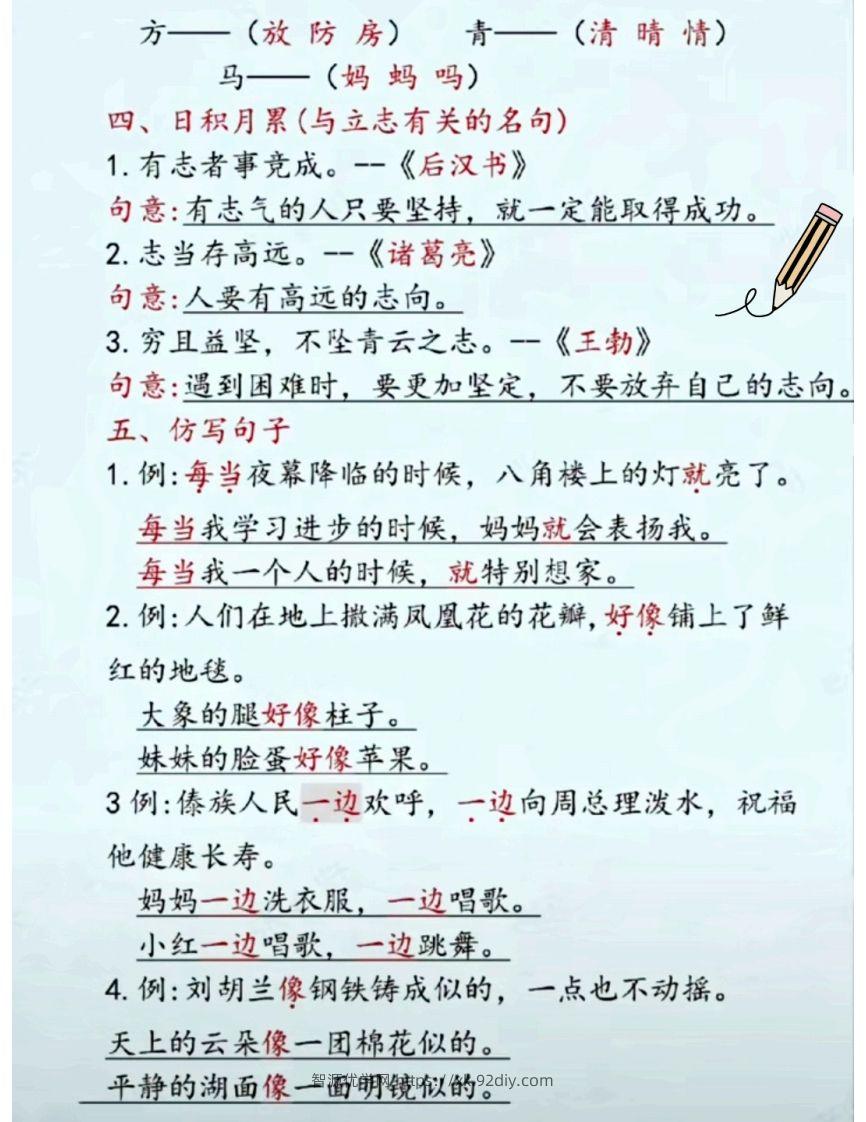 方——（放 防 房）  青——（清 晴 情）
马——（妈 蚂 吗）
四、日积月累(与立志有关的名句)
1.有志者事竞成。--《后汉书》
句意:有志气的人只要坚持，就一定能取得成功。
2.志当存高远。--《诸葛亮》
句意:人要有高远的志向。
3.穷且益坚，不坠青云之志。--《王勃》
句意:遇到困难时，要更加坚定，不要放弃自己的志向。
五、仿写句子
1.例:每当夜幕降临的时候，八角楼上的灯就亮了。
每当我学习进步的时候，妈妈就会表扬我。
每当我一个人的时候，就特别想家。
2.例:人们在地上撒满凤凰花的花瓣,好像铺上了鲜
红的地毯。
大象的腿好像柱子。
妹妹的脸蛋好像苹果。
3例:傣族人民一边欢呼，一边向周总理泼水，祝福
他健康长寿。
妈妈一边洗衣服，一边唱歌。
小红一边唱歌，一边跳舞。
4.例:刘胡兰像钢铁铸成似的，一点也不动摇。
天上的云朵像一团棉花似的。
平静的湖面像一面明镜似的。
智源优学网 https://xk.92diy.com